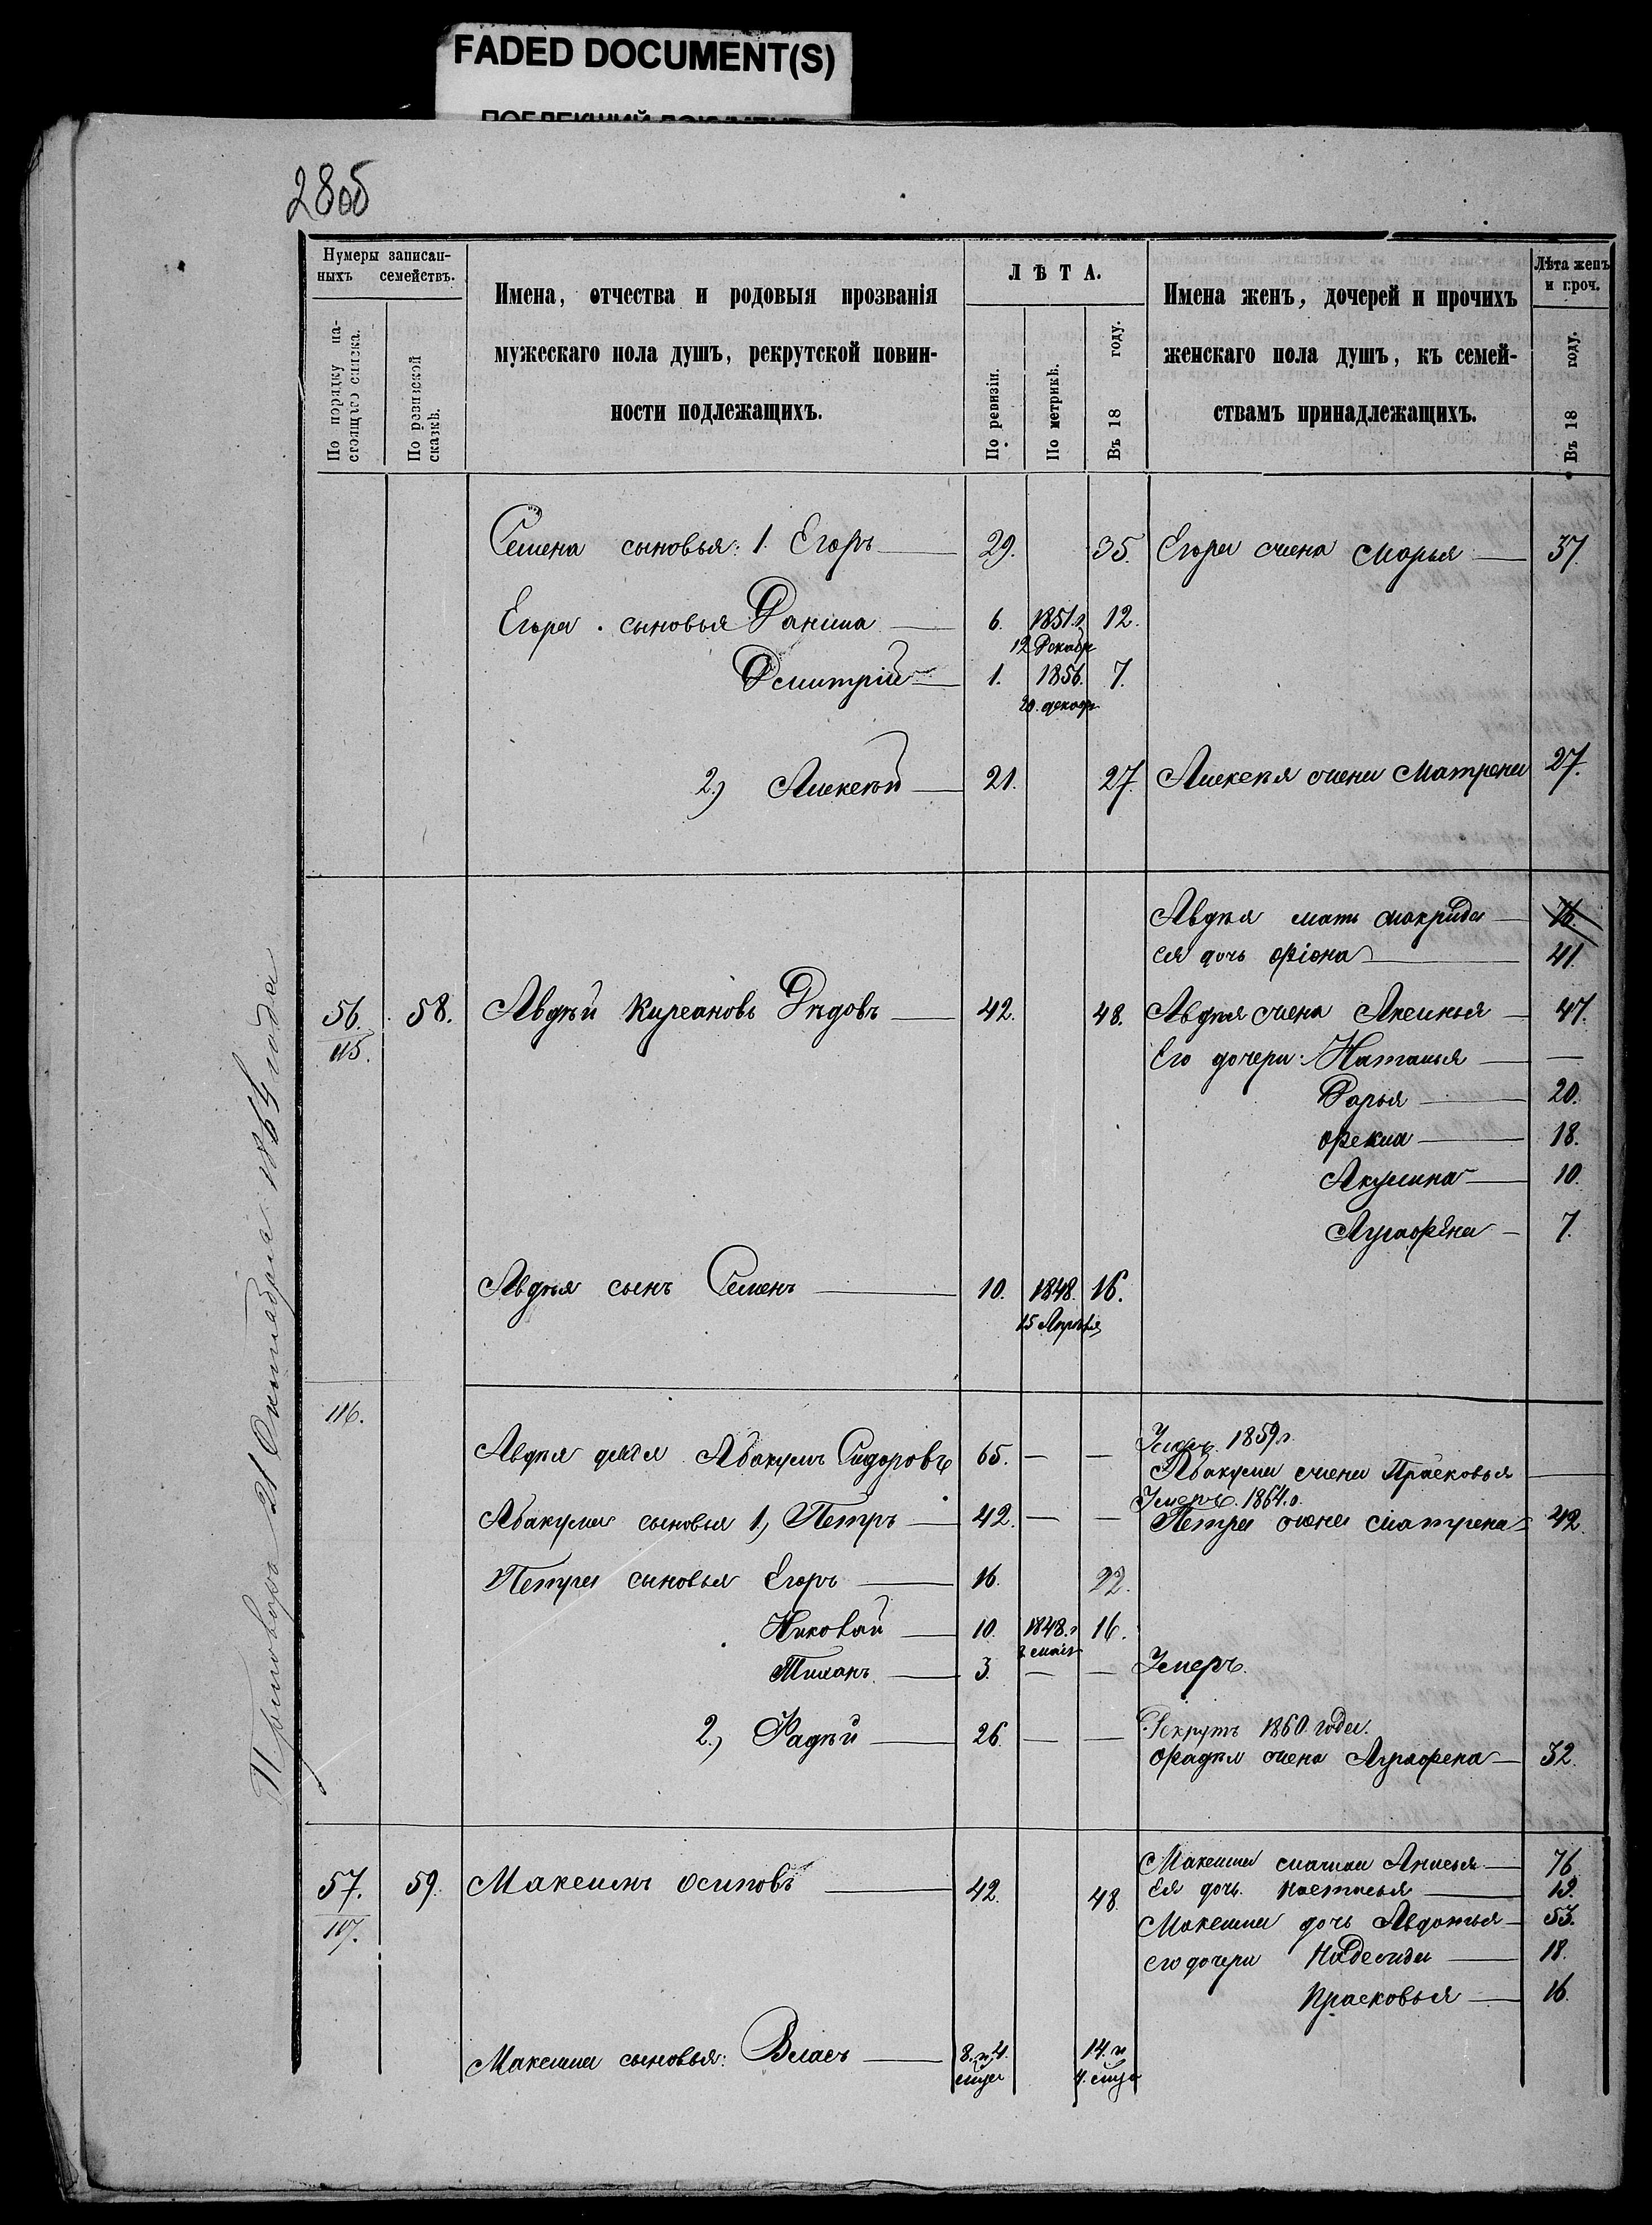 FADED DOCUMENT(S)
ПОБЛЕКШИЙ ДОКУМЕНТ
28об
Нумеры записан-
ныхъ семействъ.
По порядку на-
стоящаго списка.
По ревизской
сказкѣ.
Имена, отчества и родовыя прозванія
мужескаго пола душъ, рекрутской повин-
ности подлежащихъ.
ЛѢТА.
По ревизіи.
По метрикѣ.
Въ 18 году.
Имена женъ, дочерей и прочихъ
женскаго пола душъ, къ семей-
ствамъ принадлежащихъ.
Лѣта женъ
и проч.
Въ 18 году.
Семена сыновья: 1. Егоръ 29. 35. Егора жена Марья 37.
Егора сыновья Данила 6. 1851.г 12.
12 Декабр
Дмитрій 1. 1856. 7.
20. декабр
2.) Алексѣй 21. 27. Алексѣя жена Матрена 27.
Авдѣя мать Макрида 76.
ея дочь Фіона 41.
56. 58. Авдѣй Кирсановъ Дѣдовъ 42. 48. Авдѣя жена Аксинья 47.
115. Его дочери: Наталья —
Дарья 20.
Фекла 18.
Акулина 10.
Аграфена 7.
Авдѣя сынъ Семенъ 10. 1848. 16.
15 Апрѣля
116.
Авдѣя дядя Абакумъ Сидоровъ 65. — — Умеръ. 1859г.
Абакума жена Прасковья —
Абакума сыновья 1, Петръ 42. — — Умеръ. 1864.г.
Петра жена Матрена 42.
Петра сыновья Егоръ 16. 22.
Николай 10. 1848.г 16.
мая
3. — — Умеръ.
2.) Фадѣй 26. — — Рекрутъ 1860 года.
Фадѣя жена Аграфена 32.
57. 59. Максимъ Осиповъ 42. 48.
117.
Максима Анисья 76
Ея дочь Настасья 19.
Максима дочь Авдотья 53.
его дочери 18.
Прасковья 16.
Максима сыновья: Власъ 8. и 4. 14. и
4.
Приговоръ 21 Октября 1864 года